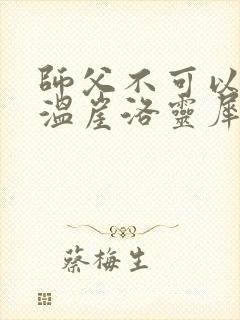 師父不可以
溫崖洛靈犀
蔡梅生